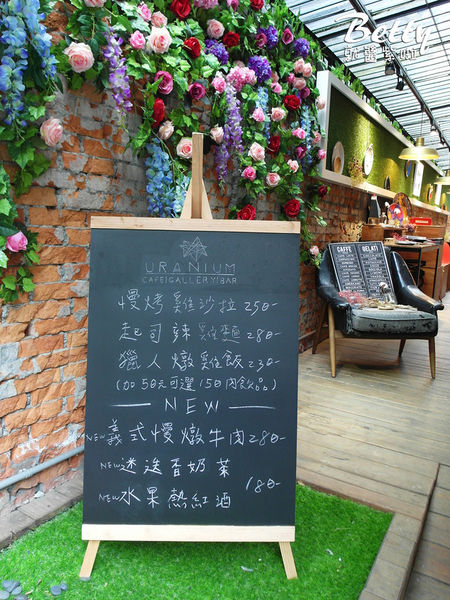 Betty
凱醬紫啊!
URANIUM
CAFE|GALLERY|BAR
慢烤雞沙拉 250-
起司辣雞麵 280-
獵人燉雞飯 230-
(加50元可選150內飲品)
NEW
NEW 義式慢燉牛肉 280-
NEW 迷迭香奶茶
180-
NEW 水果熱紅酒
CAFE GELATI